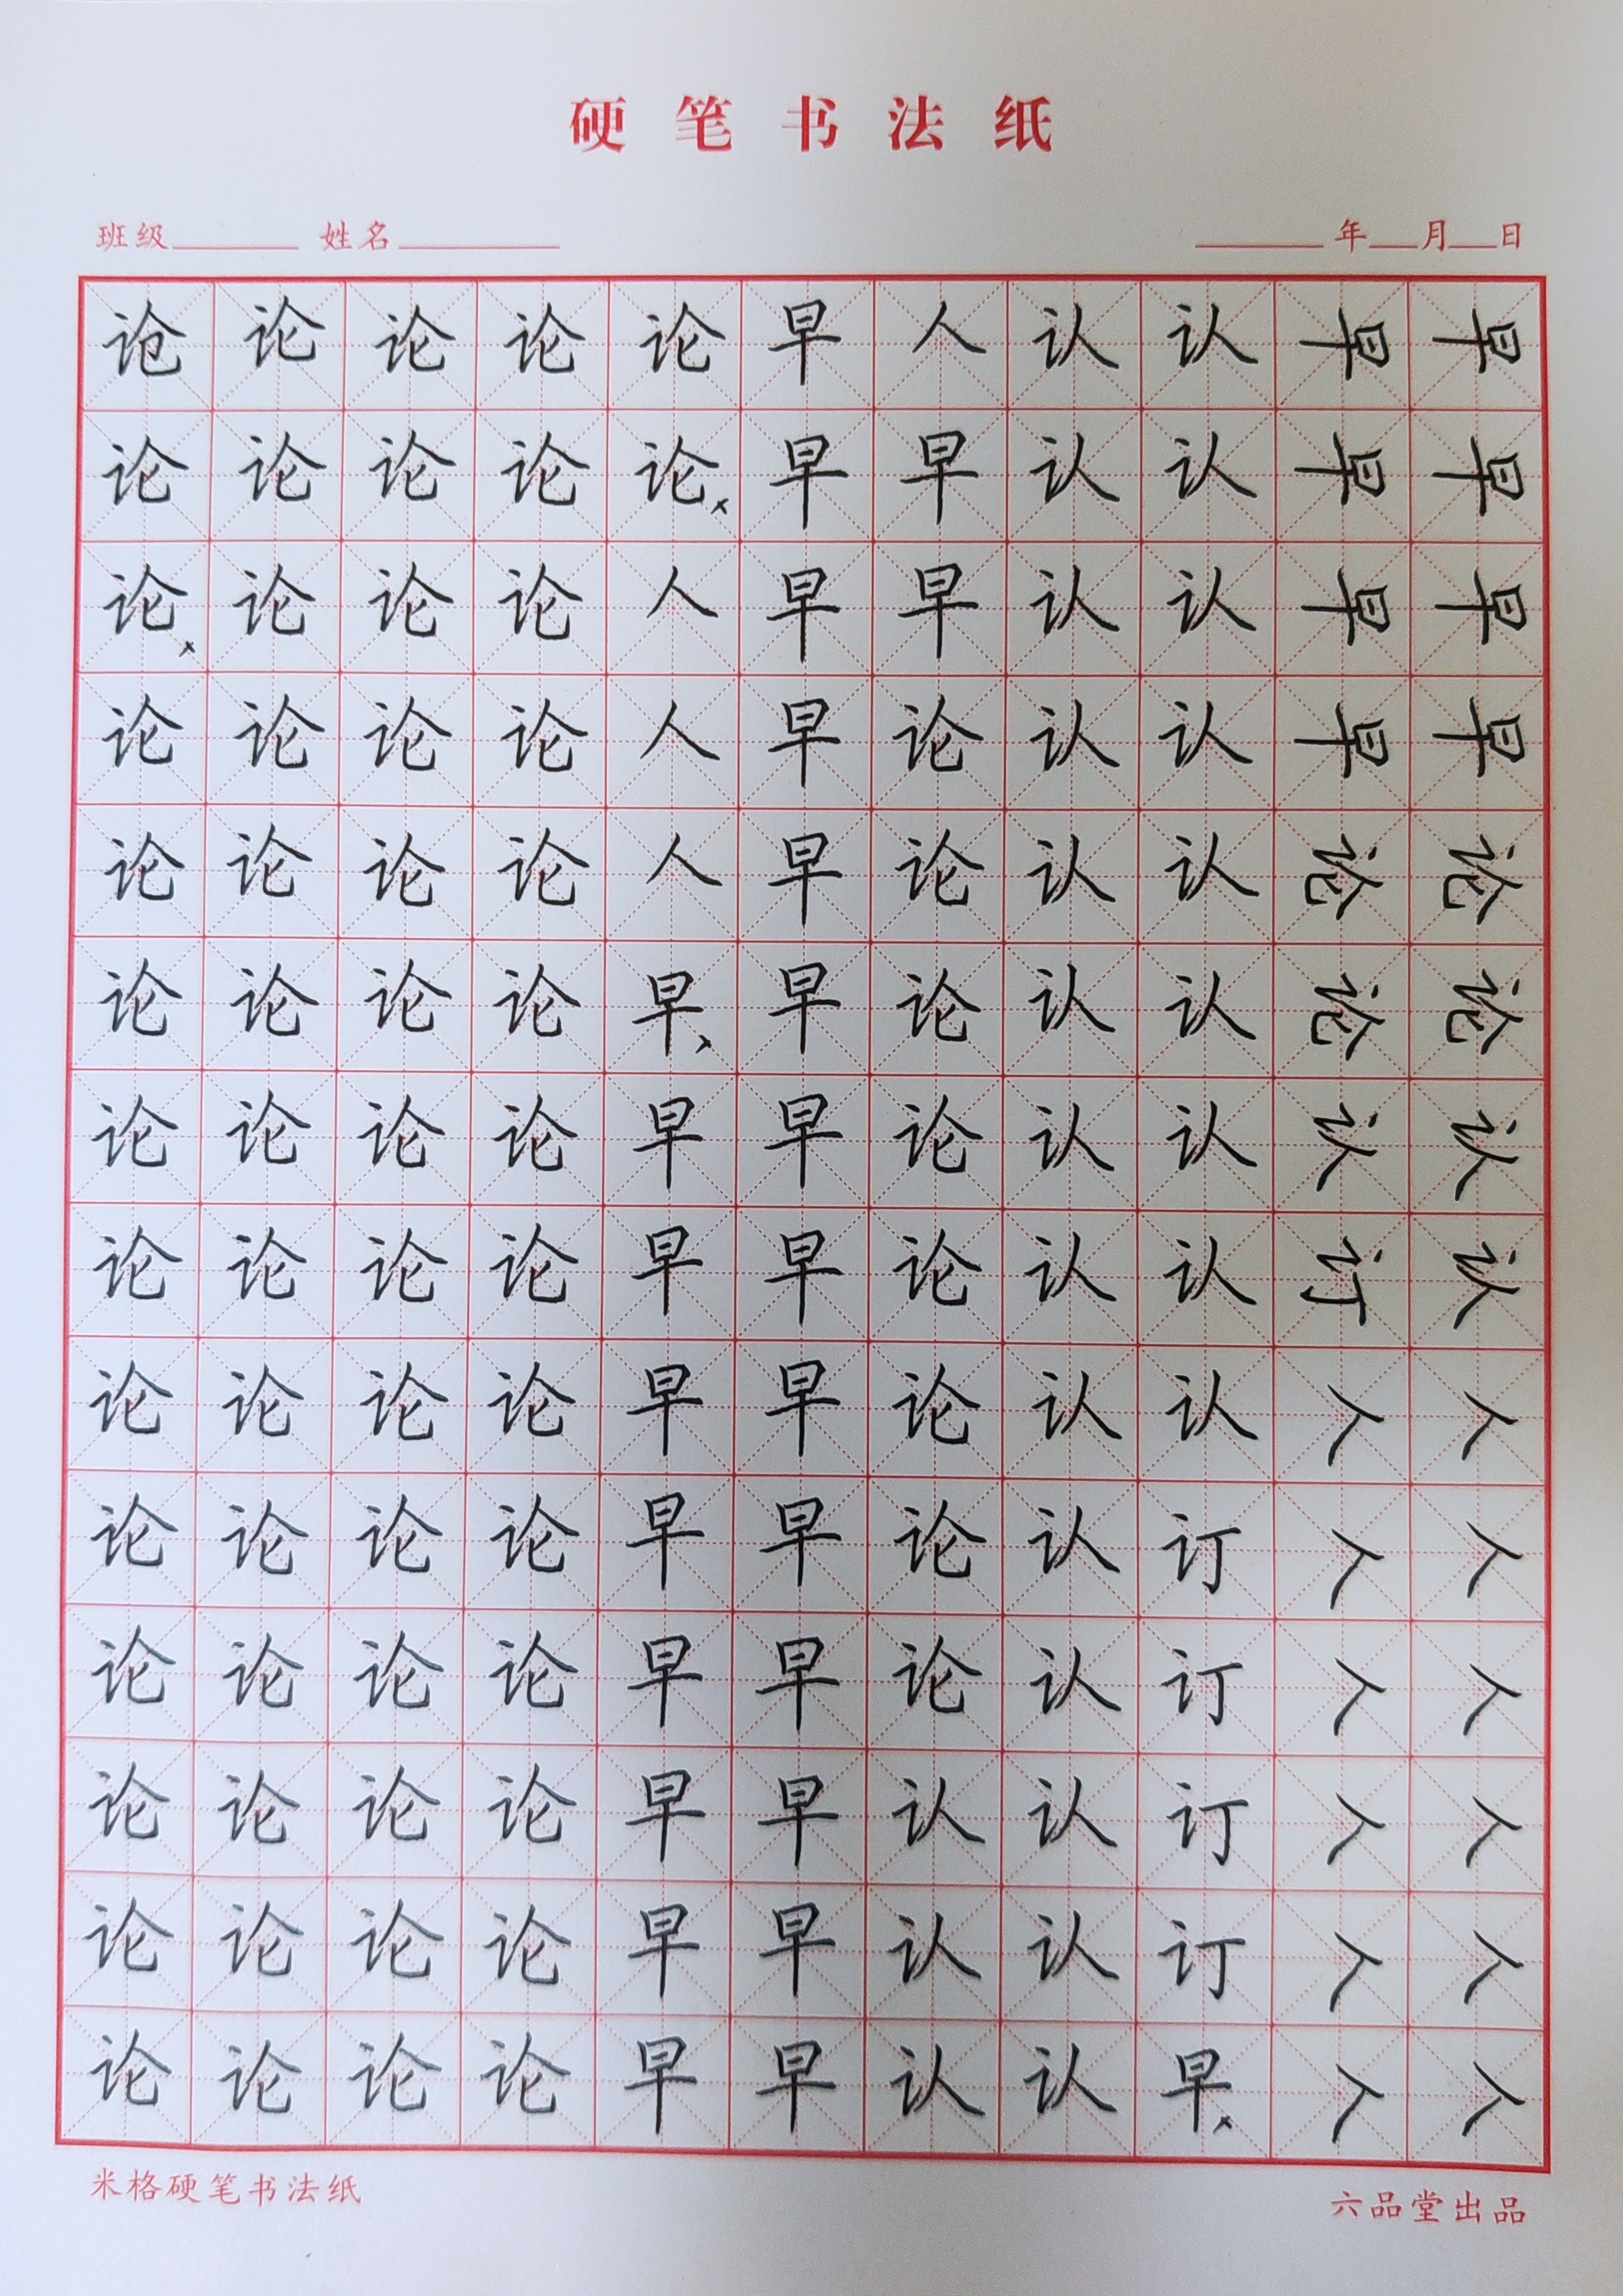 硬笔书法纸
班级 姓名 年 月 日
论 论 论 论 论 早 人 认 认 早 早
论 论 论 论 论 早 早 认 认 早 早
论 论 论 论 人 早 早 认 认 早 早
论 论 论 论 人 早 论 认 认 早 早
论 论 论 论 人 早 论 认 认 论 论
论 论 论 论 早 早 论 认 认 论 论
论 论 论 论 早 早 论 认 认 认 认
论 论 论 论 早 早 论 认 认 订 认
论 论 论 论 早 早 论 认 认 人 人
论 论 论 论 早 早 论 认 订 人 人
论 论 论 论 早 早 论 认 订 人 人
论 论 论 论 早 早 认 认 订 人 人
论 论 论 论 早 早 认 认 订 人 人
论 论 论 论 早 早 认 认 早 人 人
米格硬笔书法纸 六品堂出品